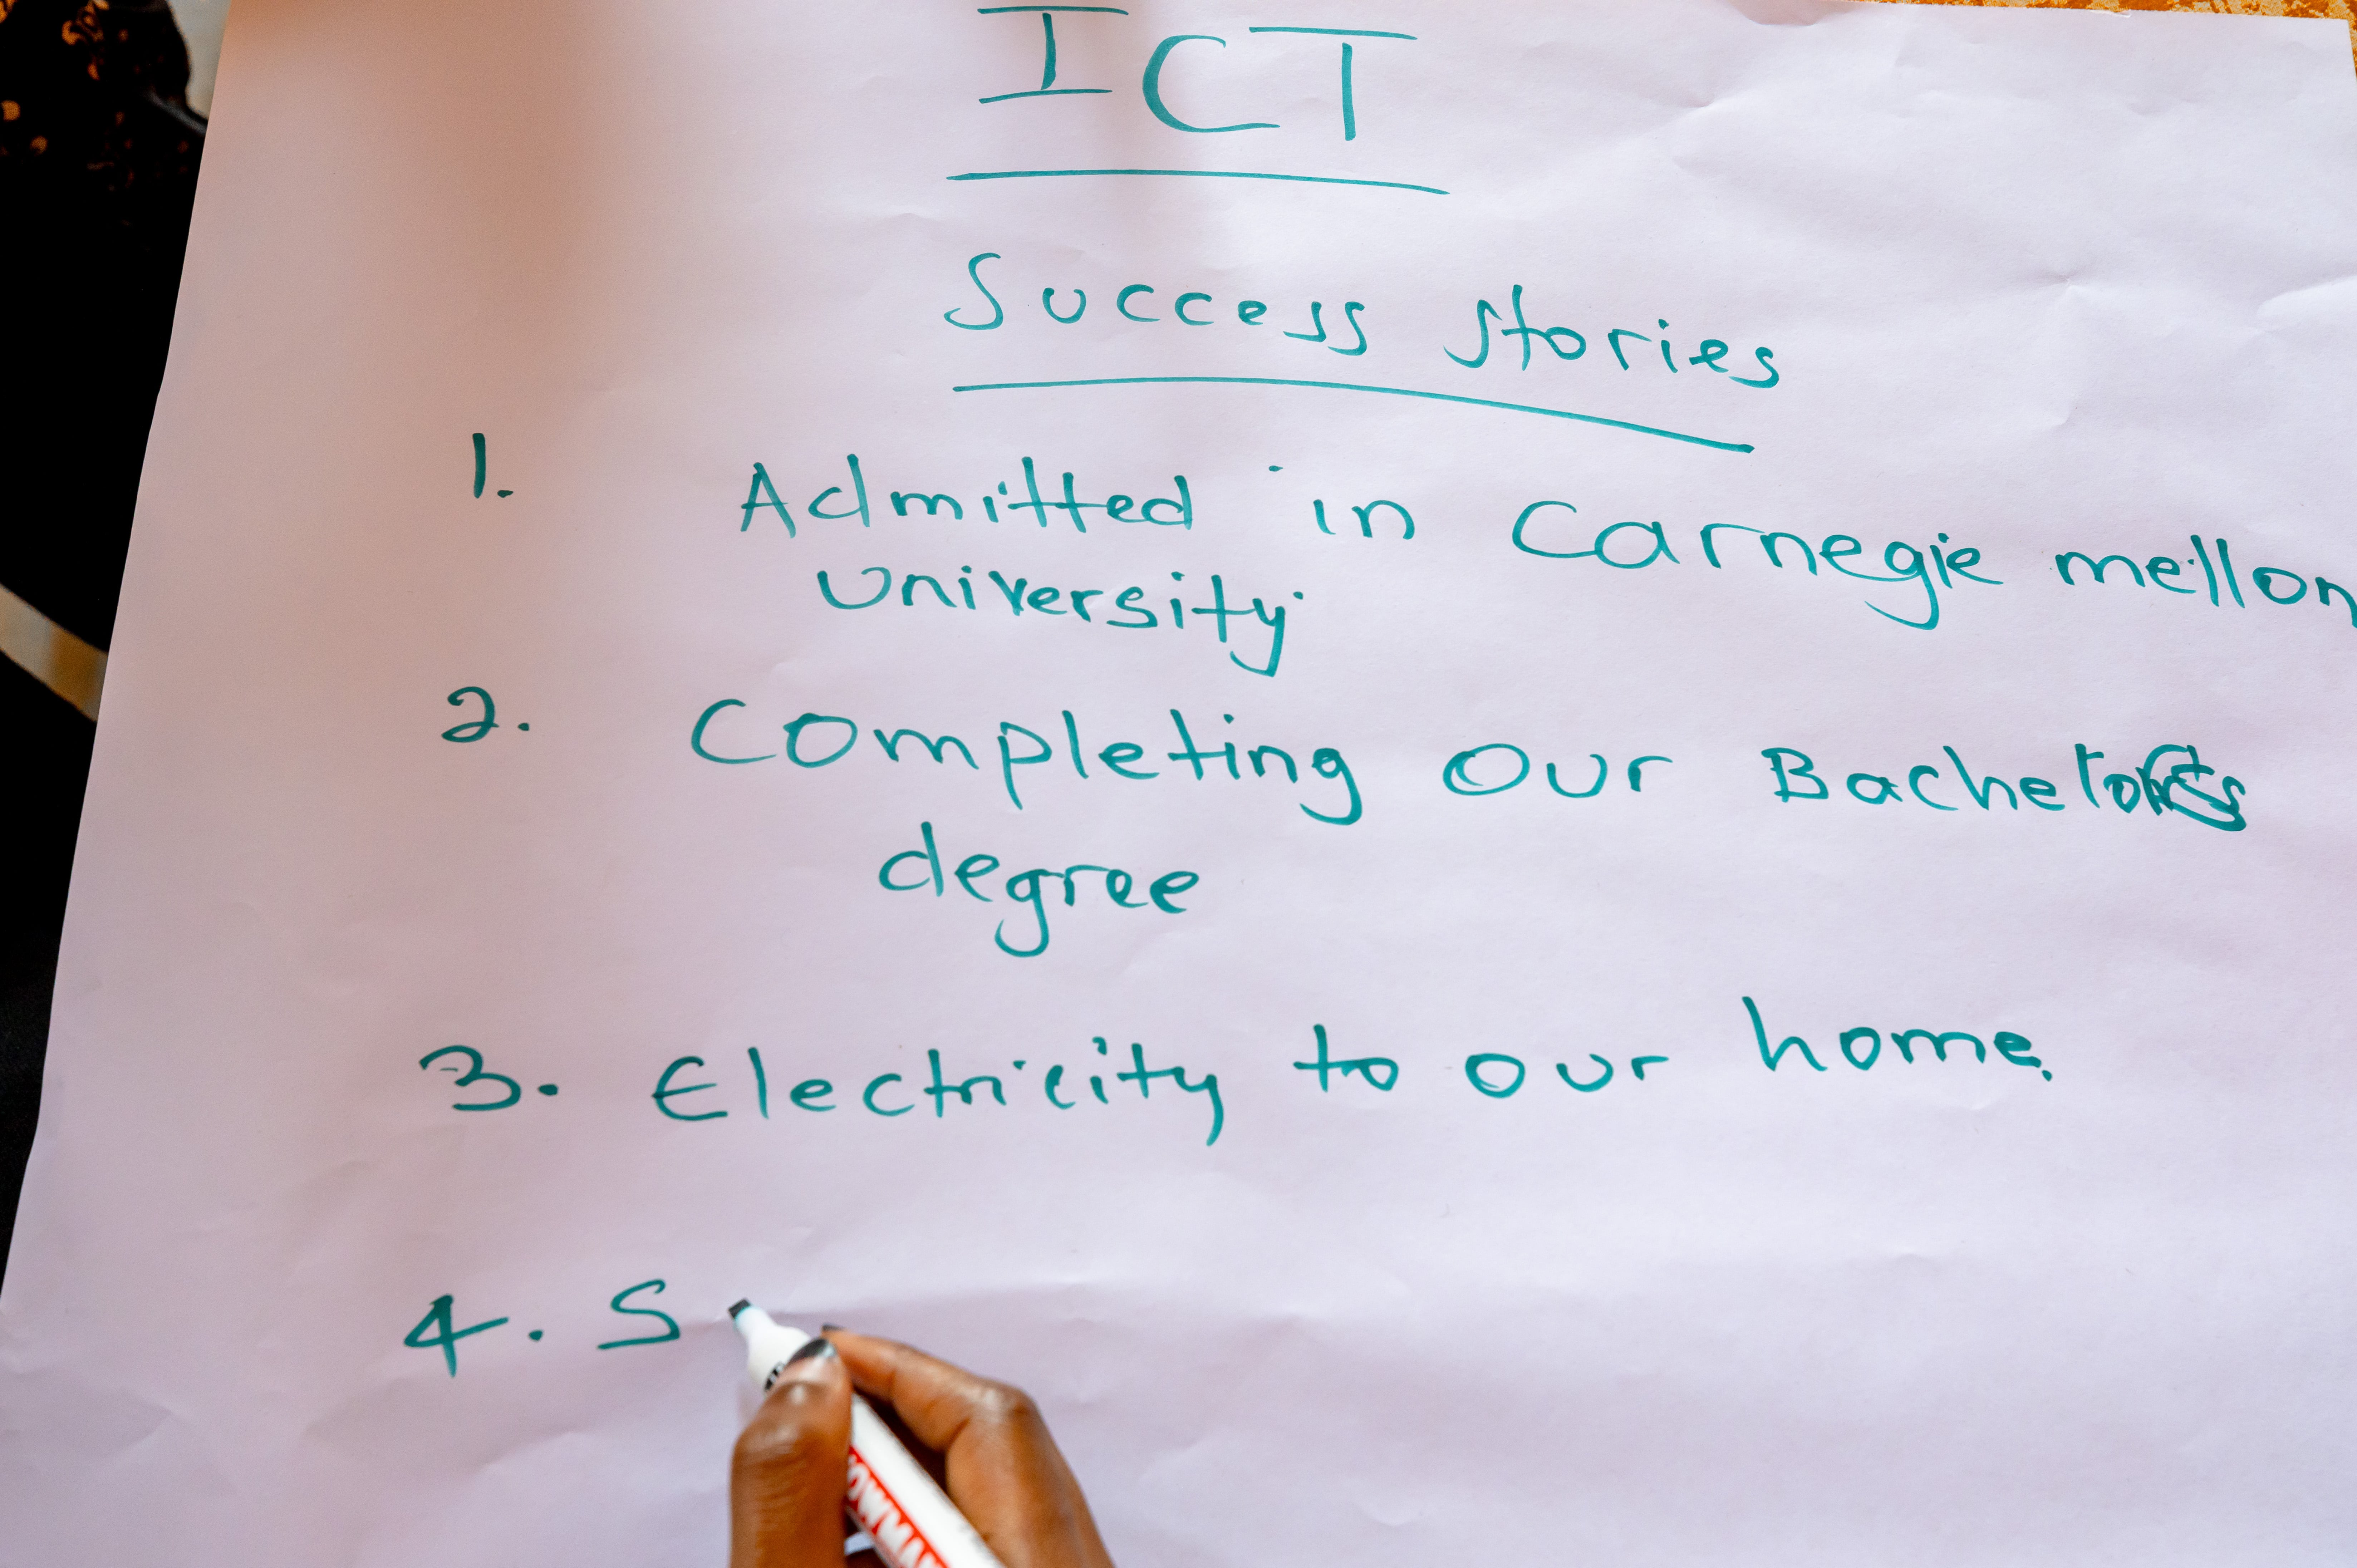 ICT
Success stories
1. Admitted in Carnegie mellon
University.
2. Completing our Bachelors
degree
3. Electricity to our home.
4. S